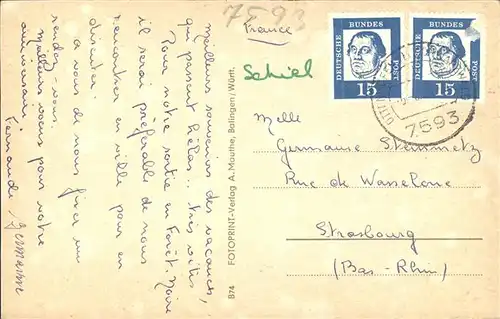 7593
France
Schiel
DEUTSCHE BUNDES POST
15
DEUTSCHE BUNDES POST
15
7593
Melle
Germaine Steinmetz
Rue de Wasselone
Strasbourg
(Bas-Rhin)
FOTOPRINT-Verlag A. Mauthe, Balingen/Württ.
B74
Meilleurs souvenirs des vacances,
qui passent hélas.. très vites
Pour notre sortie en Forêt-Noire
il serai préférable de nous
rencontrer en ville pour en
discuter.
a vous de nous fixer un
rendez-vous.
Meilleurs voeux pour votre
anniversaire.
Fernande Germaine